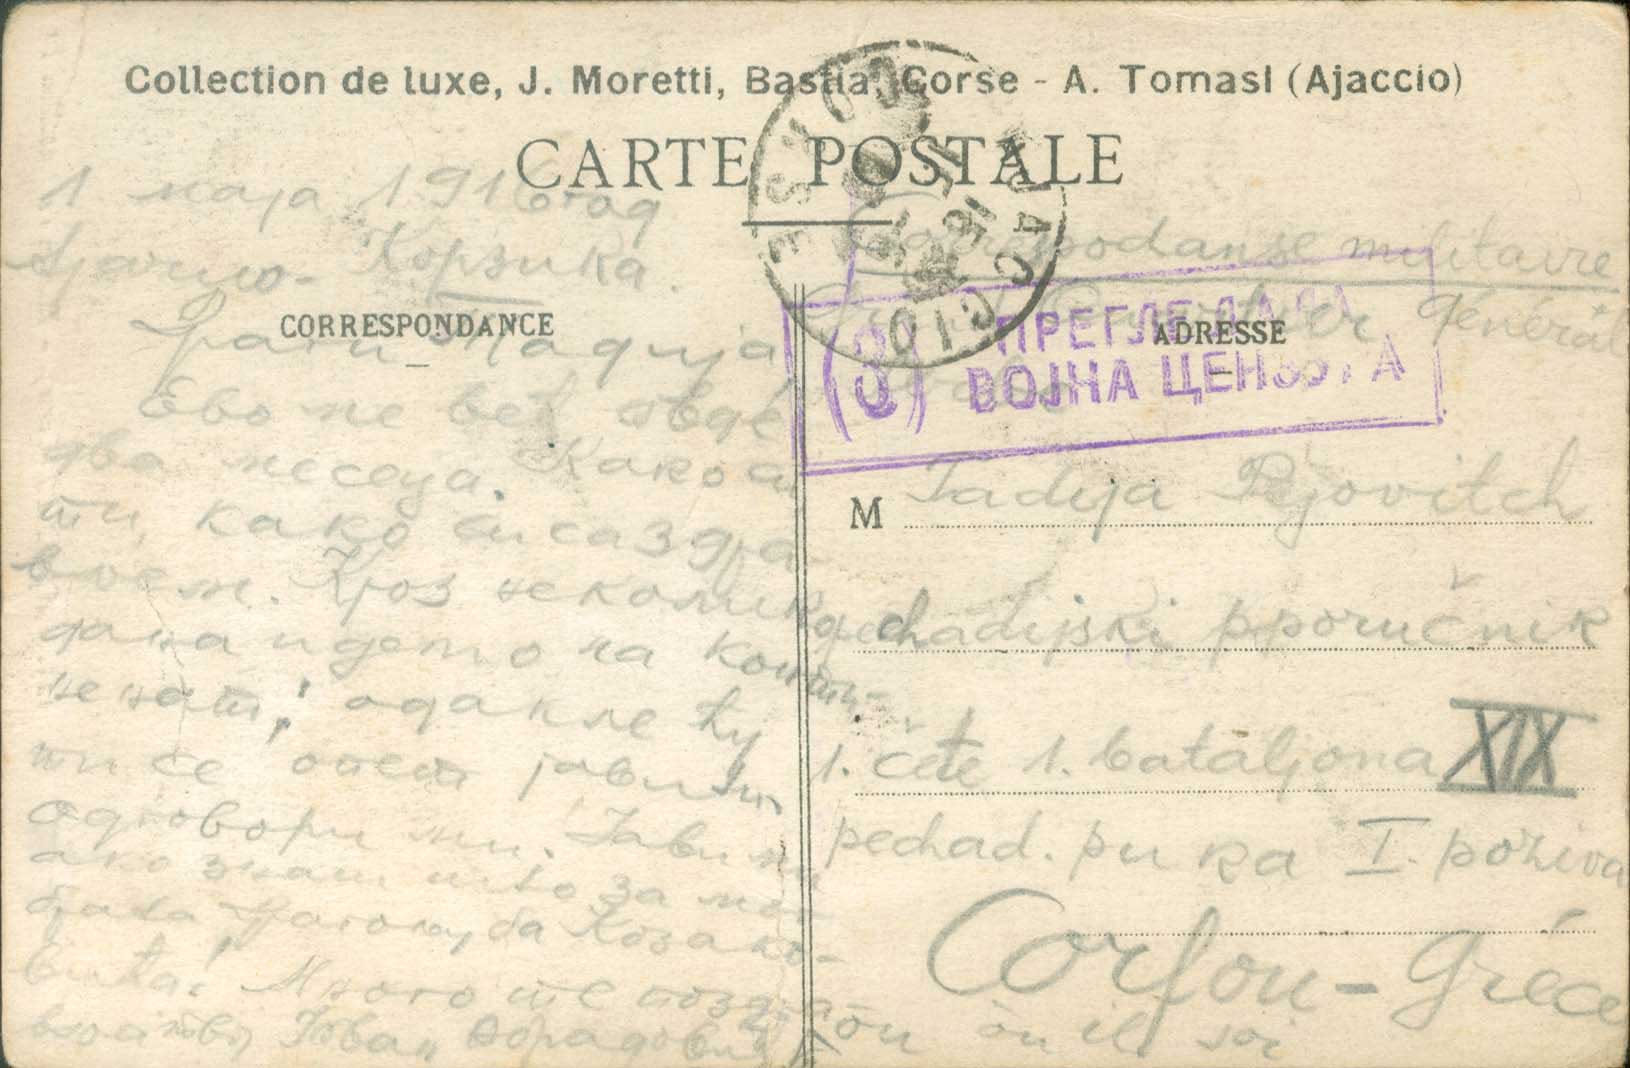 Collection de luxe, J. Moretti, Bastia, Corse - A. Tomasi (Ajaccio)
CARTE POSTALE
CORRESPONDANCE
1 маја 1916 год
Ајачио - Корзика.
Драги Тадија
Ево ме већ овде
два месеца. Како си
ти, како си са здра-
вљем. Кроз неколико
дана идемо на конти-
ненат, одакле ћу
ти се опет јавити
Одговори ми. Јави ми
ако знаш што за мог
брата Драгољуба Козако-
вића! Много те поздра
Јован Обрадовић
AJACCIO
CORSE
(3) ПРЕГЛЕДАЛА
ВОЈНА ЦЕНЗУРА
ADRESSE
Correspodanse militaire
Quartier général
M Tadija Pejovitch
pechadijski pporučnik
1. čete 1. bataljona XIX
pechad. puka I. poziva
Corfou - Gréce
ou il soi